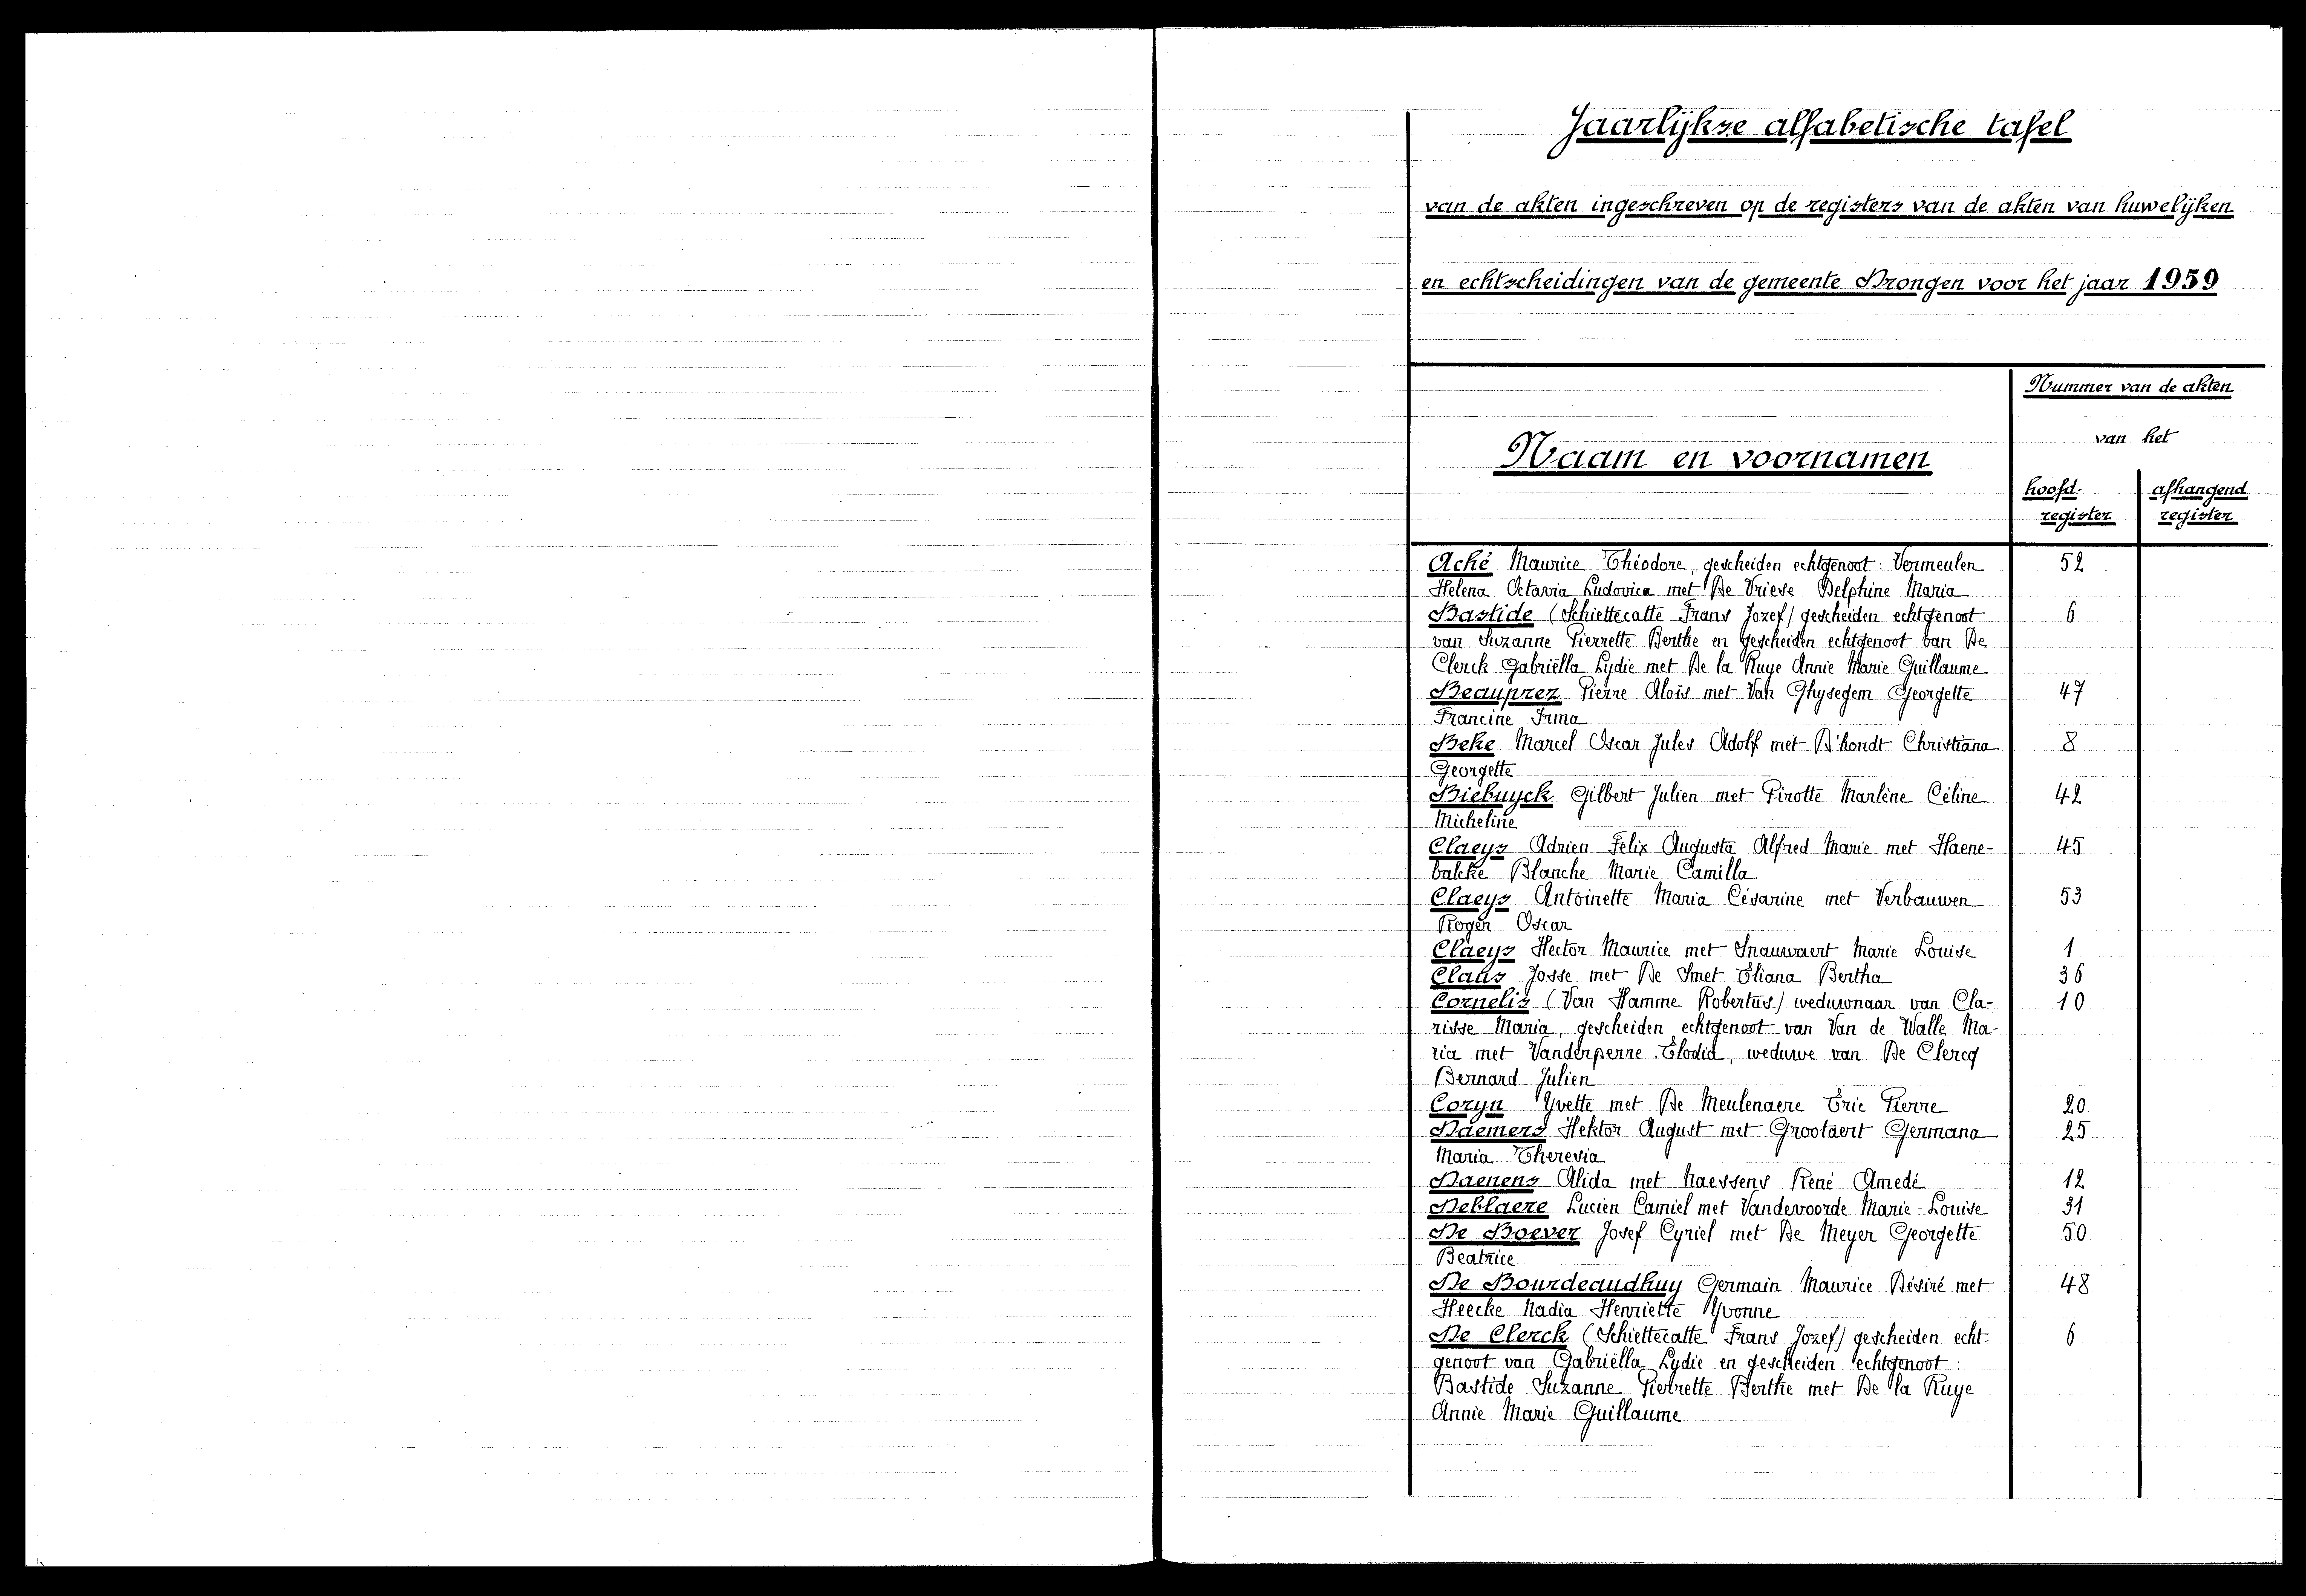 Jaarlijkse alfabetische tafel
van de akten ingeschreven op de registers van de akten van huwelijken
en echtscheidingen van de gemeente Drongen voor het jaar 1959
Nummer van de akten
van het
Naam en voornamen
hoofd- afhangend
register register
Aché Maurice Théodore, gescheiden echtgenoot: Vermeulen 52
Helena Octavia Ludovica met De Vriese Delphine Maria
Bastide (Schiettecatte Frans Jozef) gescheiden echtgenoot 6
van Suzanne Pierrette Berthe en gescheiden echtgenoot van De
Clerck Gabriëlla Lydie met De la Ruye Annie Marie Guillaume
Beauprez Pierre Aloïs met Van Ghysegem Georgette 47
Francine Irma
Beke Marcel Oscar Jules Adolf met D'hondt Christiana 8
Georgette
Biebuyck Gilbert Julien met Pirotte Marlène Céline 42
Micheline
Claeys Adrien Felix Augusta Alfred Marie met Haene- 45
balcke Blanche Marie Camilla
Claeys Antoinette Maria Césarine met Verbauwen 53
Roger Oscar
Claeys Hector Maurice met Snauwaert Marie Louise 1
Claus Josse met De Smet Eliana Bertha 36
Cornelis (Van Hamme Robertus) weduwnaar van Cla- 10
risse Maria, gescheiden echtgenoot van Van de Walle Ma-
ria met Vanderperre Elodia, weduwe van De Clercq
Bernard Julien
Coryn Yvette met De Meulenaere Eric Pierre 20
Daemers Hektor August met Grootaert Germana 25
Maria Theresia
Daenens Alida met Naessens René Amedé 12
Deblaere Lucien Camiel met Vandevoorde Marie-Louise 31
De Boever Josef Cyriel met De Meyer Georgette 50
Beatrice
De Bourdeaudhuy Germain Maurice Désiré met 48
Heecke Nadia Henriette Yvonne
De Clerck (Schiettecatte Frans Jozef) gescheiden echt- 6
genoot van Gabriëlla Lydie en gescheiden echtgenoot:
Bastide Suzanne Pierrette Berthe met De la Ruye
Annie Marie Guillaume